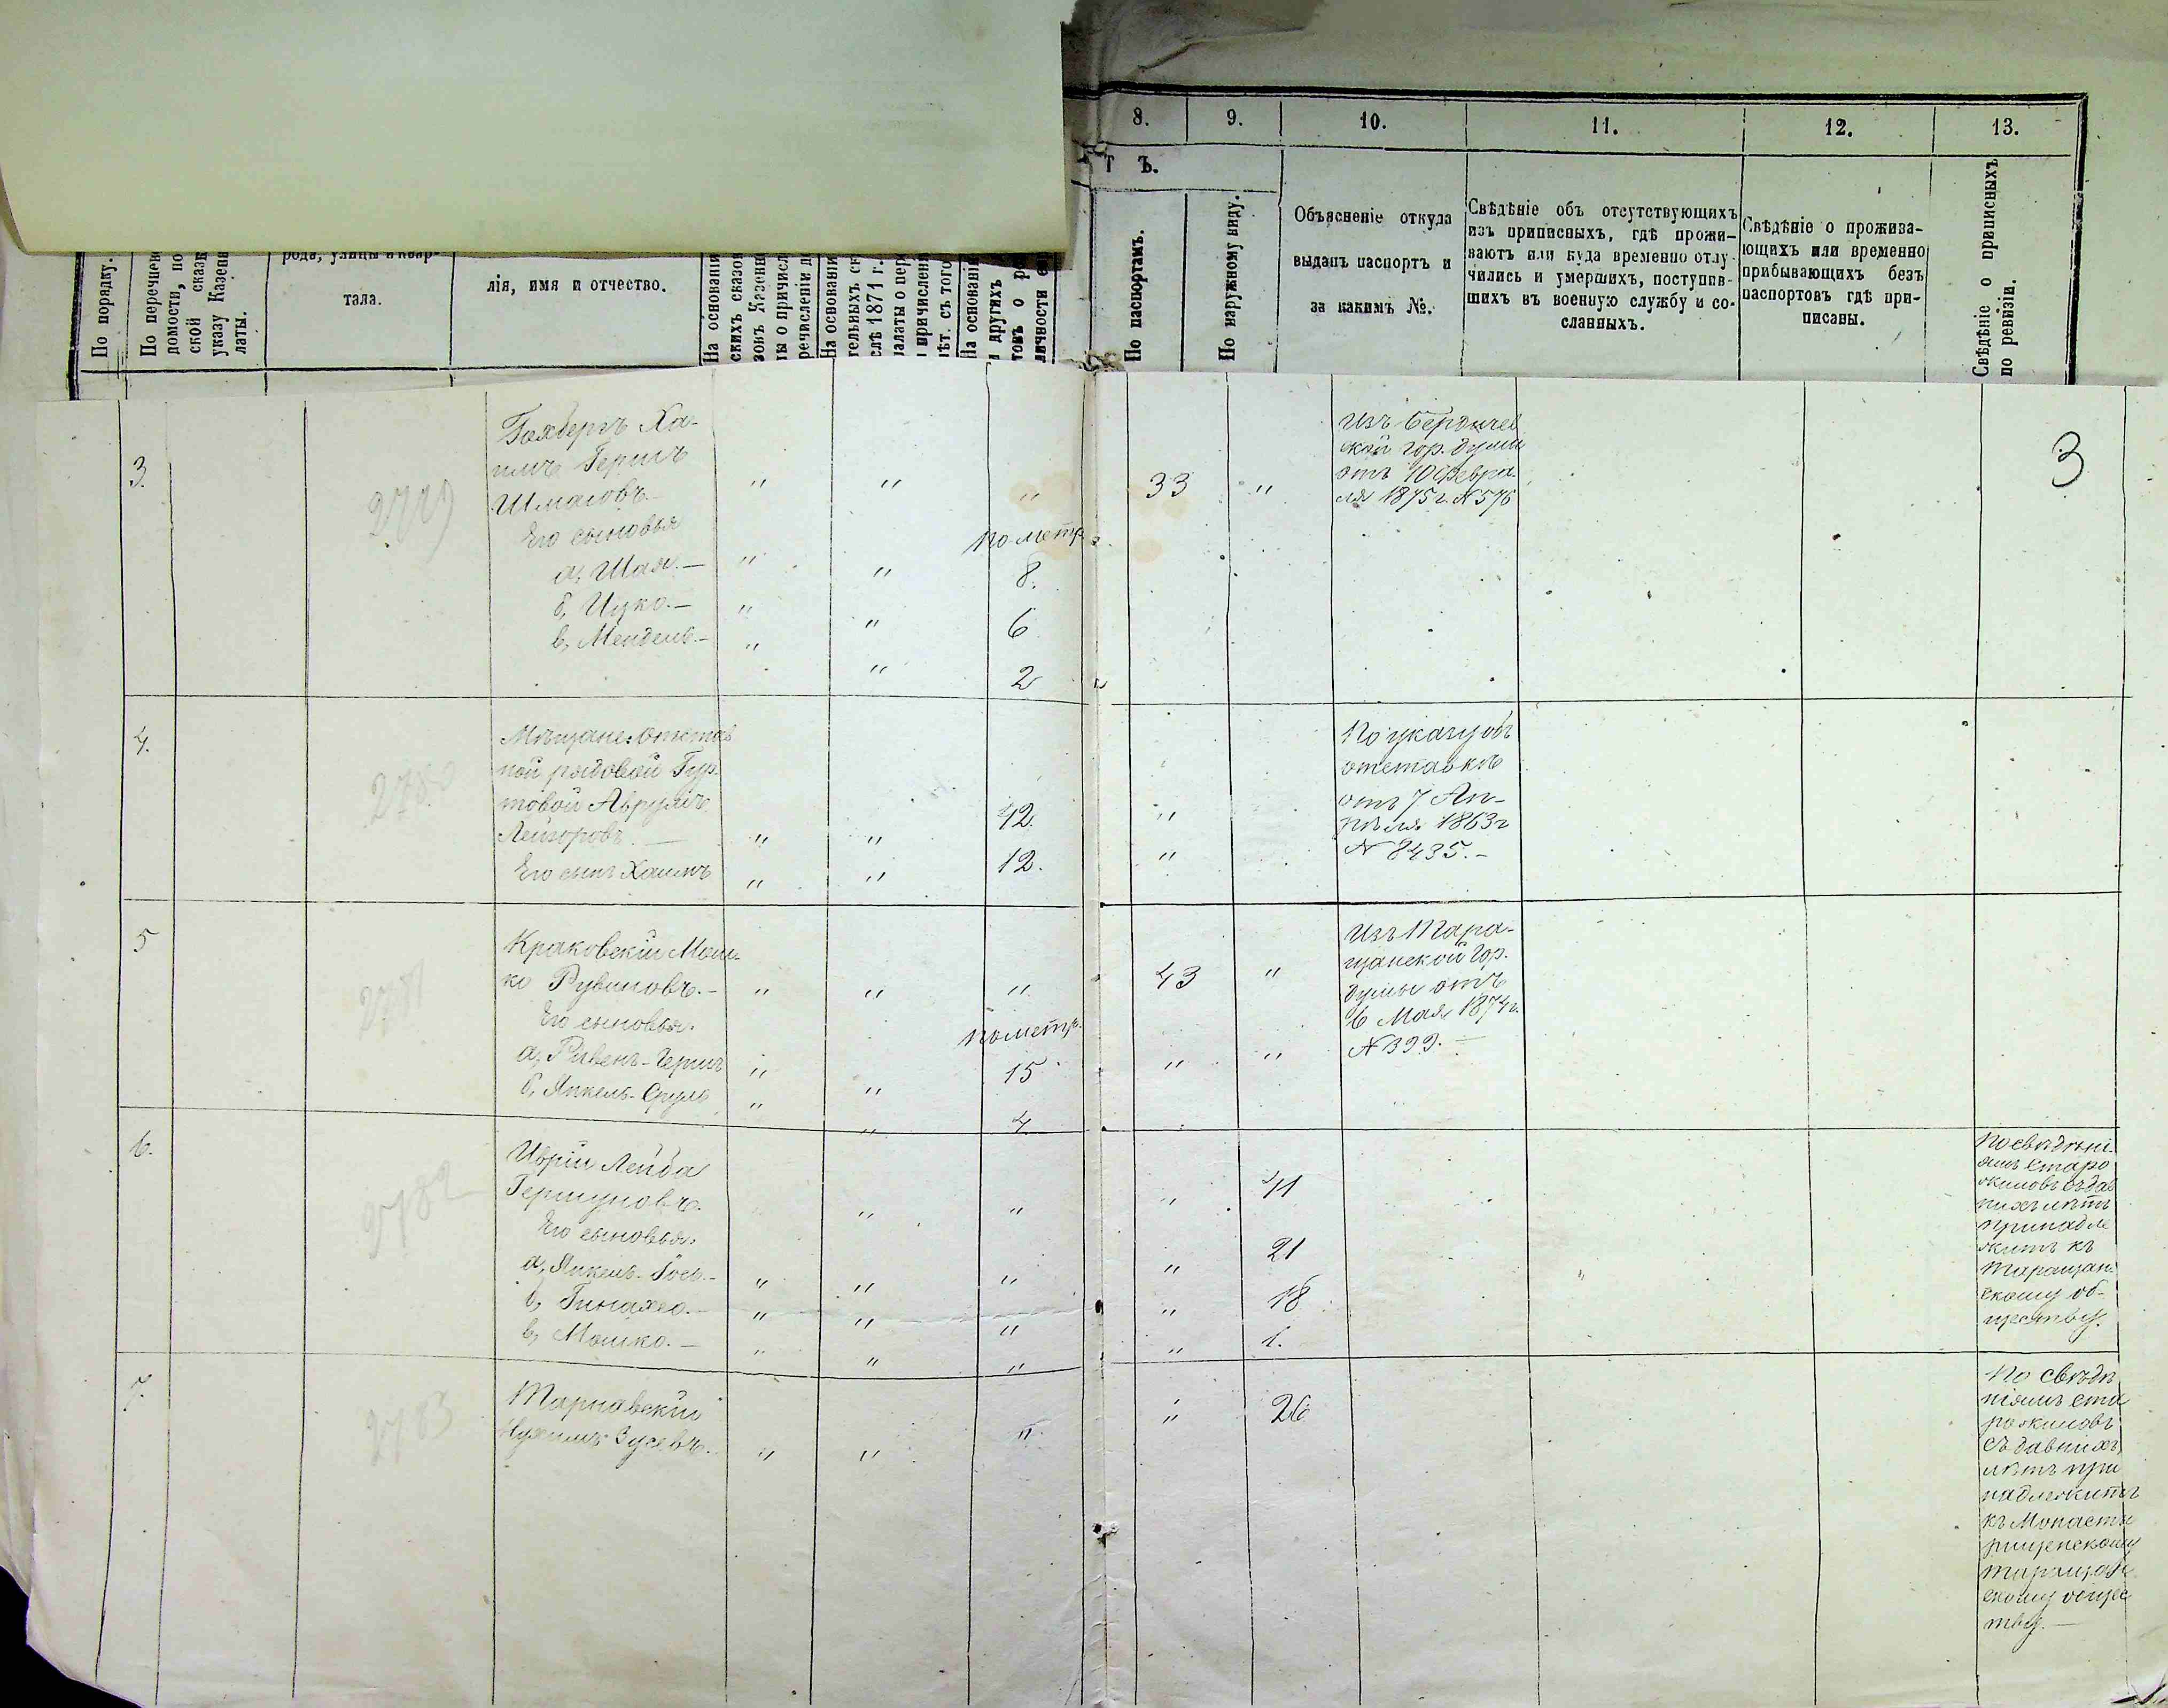 8. 9. 10. 11. 12. 13.
Т Ъ.
По порядку.
По перечнев
домости, по
ской сказк
указу Казенн
латы.
рода, улицы и квар-
тала.
лія, имя и отчество.
На основаніи
скихъ сказок
зонъ Казенн
ы о причисл
речисленіи д
На основаніи
тельныхъ ск
слѣ 1871 г.
алаты о пер
причислені
ѣт. съ того
На основані
и другихъ
товъ о р
личности
По паспортамъ.
По наружному виду.
Объясненіе откуда
выданъ паспортъ и
за какимъ №.
Свѣдѣніе объ отсутствующихъ
изъ приписныхъ, гдѣ прожи-
ваютъ или куда временно отлу-
чились и умершихъ, поступив-
шихъ въ военную службу и со-
сланныхъ.
Свѣдѣніе о прожива-
ющихъ или временно
прибывающихъ безъ
паспортовъ гдѣ при-
писаны.
Свѣдѣніе о приписныхъ
по ревизіи.
3
3.
2779
Гохбергъ Ха-
имъ Гершъ
Шмаговъ
Его сыновья
а, Шая. —
б, Ицко. —
в, Мендель. —
" " "
по метр.
" " 8.
" " 6
" " 2
33 "
Изъ Бердичев
ской гор. думы
отъ 10 Февра-
ля 1875 г. № 576
4.
2780
Мѣщане: Отстав
ной рядовой Гур-
товой Аврумъ
Лейзоровъ. —
Его сынъ Хаимъ
" " 42. "
" " 12. "
По указу объ
отставкѣ
отъ 7 Ап-
рѣля 1863 г
№ 8435. —
5
2781
Краковскій Мош-
ко Рувиновъ. —
Его сыновья.
а, Рувенъ-Гершъ
б, Янкель-Сруль
" " "
по метр.
" " 15
" " 4
43 "
" "
Изъ Тара-
щанской Гор.
думы отъ
6 Мая 1874 г.
№ 399. —
6.
2782
Иврій Лейба
Гершуновъ.
Его сыновья.
а, Янкель-Іось. —
б,
в, Мошко. —
" " " 41
" " " " 21
" " " " 18
" " " " 1.
По свѣдѣні-
ямъ старо
жиловъ съ дав
нихъ лѣтъ
принадле
житъ къ
Таращан-
скому об-
ществу.
7.
2783
Тарнавскій
Нухимъ Зусевъ. —
" " " " 26
По свѣдѣ
ніямъ ста
рожиловъ
съ давнихъ
лѣтъ при
надлежитъ
къ Монасты
рищенскому
Таращан
скому общес
тву. —